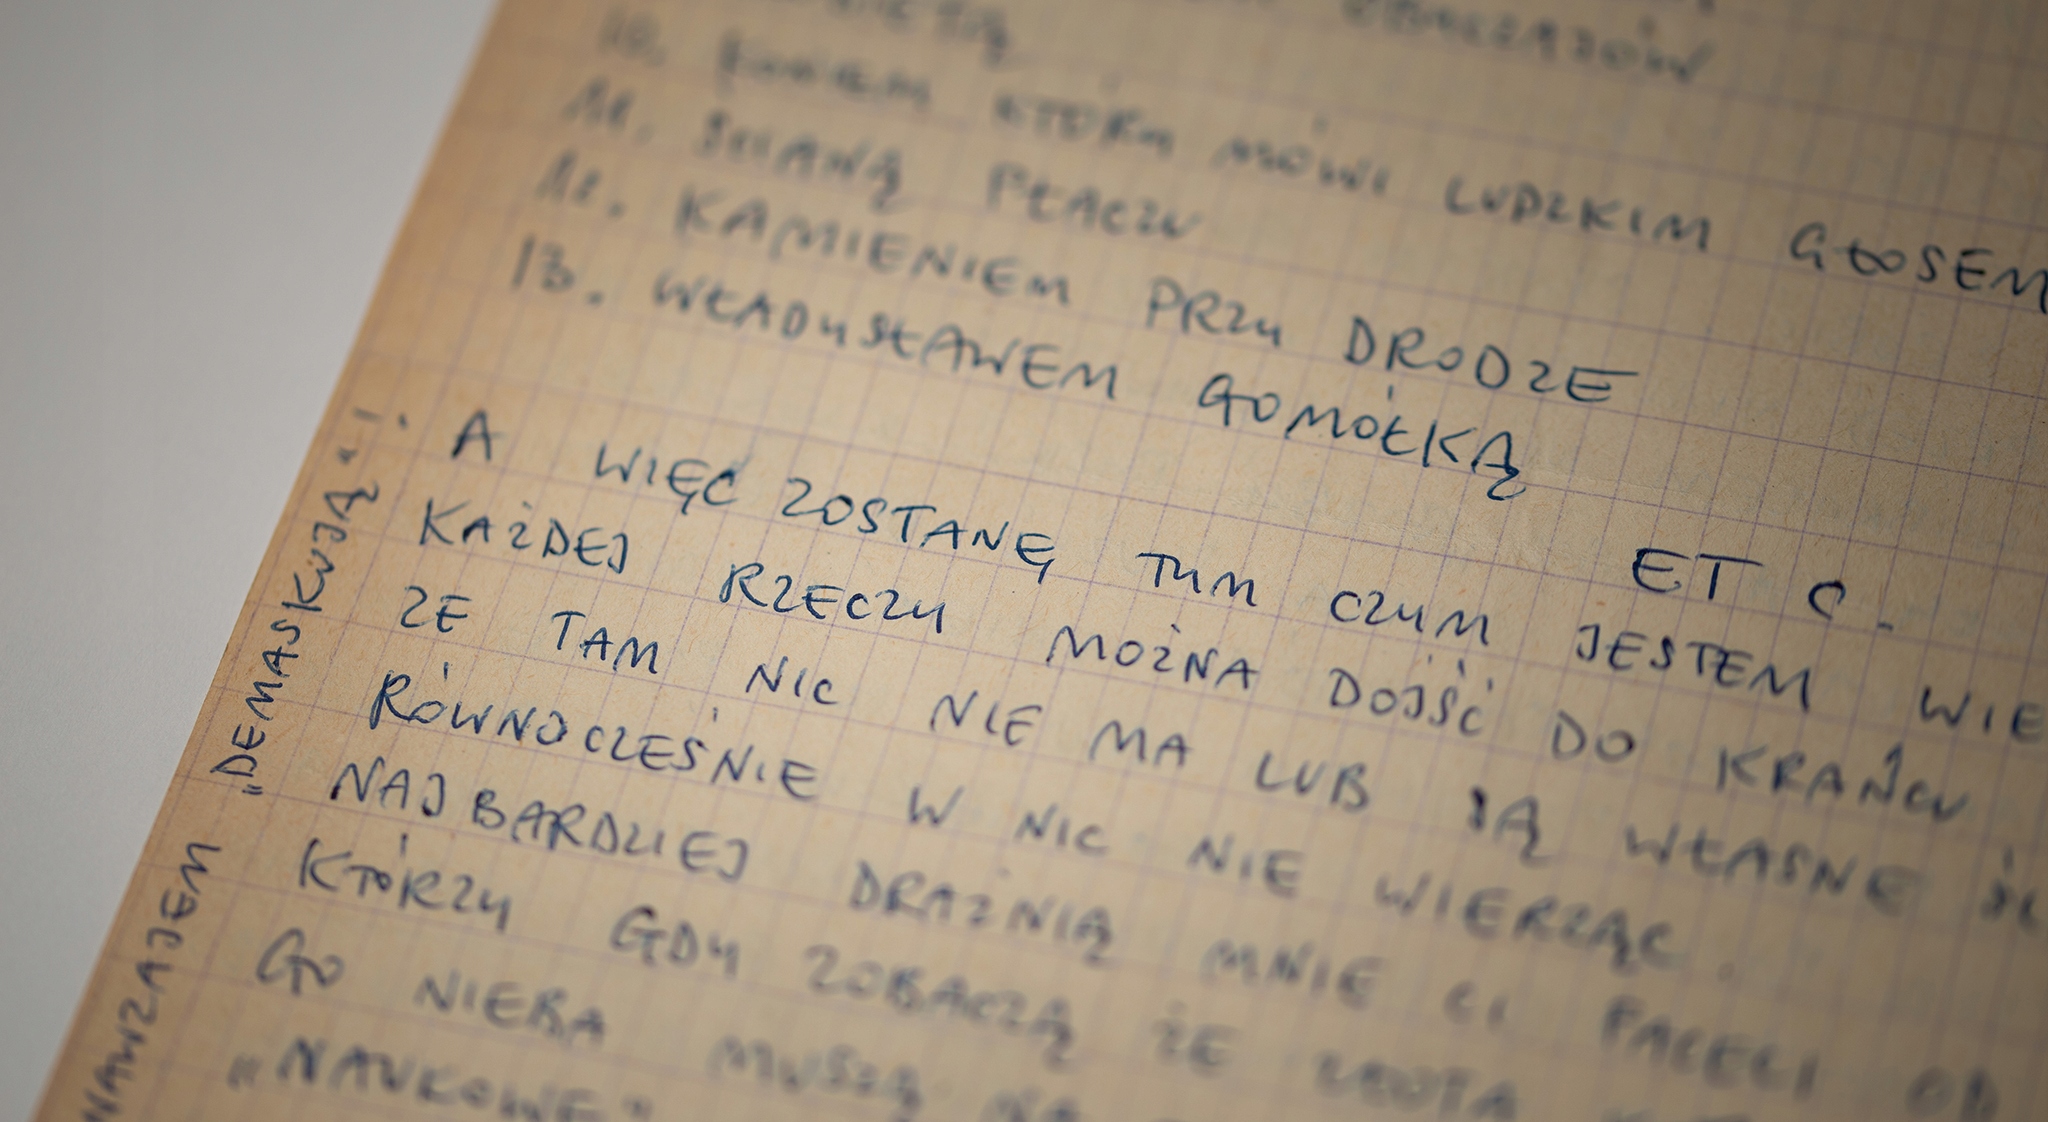 10. KONIEM KTÓRY MÓWI LUDZKIM GŁOSEM
11. ŚCIANĄ PŁACZU
12. KAMIENIEM PRZY DRODZE
13. WŁADYSŁAWEM GOMÓŁKĄ
ET C.
A WIĘC ZOSTANĘ TYM CZYM JESTEM WIE
KAŻDEJ RZECZY MOŻNA DOJŚĆ DO KRAŃCU
ZE TAM NIC NIE MA LUB SĄ WŁASNE
RÓWNOCZEŚNIE W NIC NIE WIERZĄC.
NAJBARDZIEJ DRAŻNIĄ MNIE CI FACECI OD
KTÓRZY GDY ZOBACZĄ ŻE
GO NIEBA MUSZĄ NA
„NAUKOWE"
NAWZAJEM „DEMASKUJĄ"!